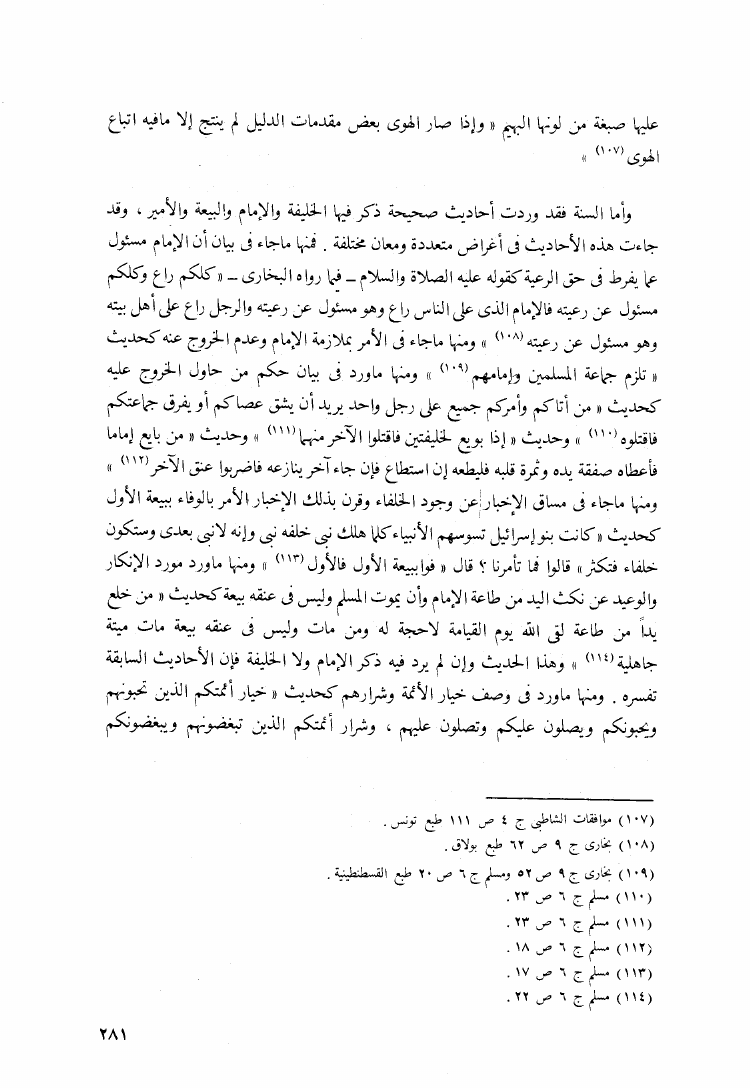 عليها صبغة من لونها البهيم « وإذا صار الهوى بعض مقدمات الدليل لم ينتج إلا مافيه اتباع
الهوى (١٠٧) »
وأما السنة فقد وردت أحاديث صحيحة ذكر فيها الخليفة والإمام والبيعة والأمير ، وقد
جاءت هذه الأحاديث فى أغراض متعددة ومعان مختلفة . فمنها ماجاء فى بيان أن الإمام مسئول
عما يفرط فى حق الرعية كقوله عليه الصلاة والسلام ــ فيما رواه البخارى ــ « كلكم راع وكلكم
مسئول عن رعيته فالإمام الذى على الناس راع وهو مسئول عن رعيته والرجل راع على أهل بيته
وهو مسئول عن رعيته (١٠٨) » ومنها ماجاء فى الأمر بملازمة الإمام وعدم الخروج عنه كحديث
« تلزم جماعة المسلمين وإمامهم (١٠٩) » ومنها ماورد فى بيان حكم من حاول الخروج عليه
كحديث « من أتاكم وأمركم جميع على رجل واحد يريد أن يشق عصاكم أو يفرق جماعتكم
فاقتلوه (١١٠) » وحديث « إذا بويع لخليفتين فاقتلوا الآخر منهما (١١١) » وحديث « من بايع إماما
فأعطاه صفقة يده وثمرة قلبه فليطعه إن استطاع فإن جاء آخر ينازعه فاضربوا عنق الآخر (١١٢) »
ومنها ماجاء فى مساق الإخبار عن وجود الخلفاء وقرن بذلك الإخبار الأمر بالوفاء ببيعة الأول
كحديث « كانت بنو إسرائيل تسوسهم الأنبياء كلما هلك نبى خلفه نبى وإنه لانبى بعدى وستكون
خلفاء فتكثر » قالوا فما تأمرنا ؟ قال « فوابيعة الأول فالأول (١١٣) » ومنها ماورد مورد الإنكار
والوعيد عن نكث اليد من طاعة الإمام وأن يموت المسلم وليس فى عنقه بيعة كحديث « من خلع
يداً من طاعة لقى الله يوم القيامة لاحجة له ومن مات وليس فى عنقه بيعة مات ميتة
جاهلية (١١٤) » وهذا الحديث وإن لم يرد فيه ذكر الإمام ولا الخليفة فإن الأحاديث السابقة
تفسره . ومنها ماورد فى وصف خيار الأئمة وشرارهم كحديث « خيار أئمتكم الذين تحبونهم
ويحبونكم ويصلون عليكم وتصلون عليهم ، وشرار أئمتكم الذين تبغضونهم ويبغضونكم
(١٠٧) موافقات الشاطبى ج ٤ ص ١١١ طبع تونس .
(١٠٨) بخارى ج ٩ ص ٦٢ طبع بولاق .
(١٠٩) بخارى ج ٩ ص ٥٢ ومسلم ج ٦ ص ٢٠ طبع القسطنطينية .
(١١٠) مسلم ج ٦ ص ٢٣ .
(١١١) مسلم ج ٦ ص ٢٣ .
(١١٢) مسلم ج ٦ ص ١٨ .
(١١٣) مسلم ج ٦ ص ١٧ .
(١١٤) مسلم ج ٦ ص ٢٢ .
٢٨١